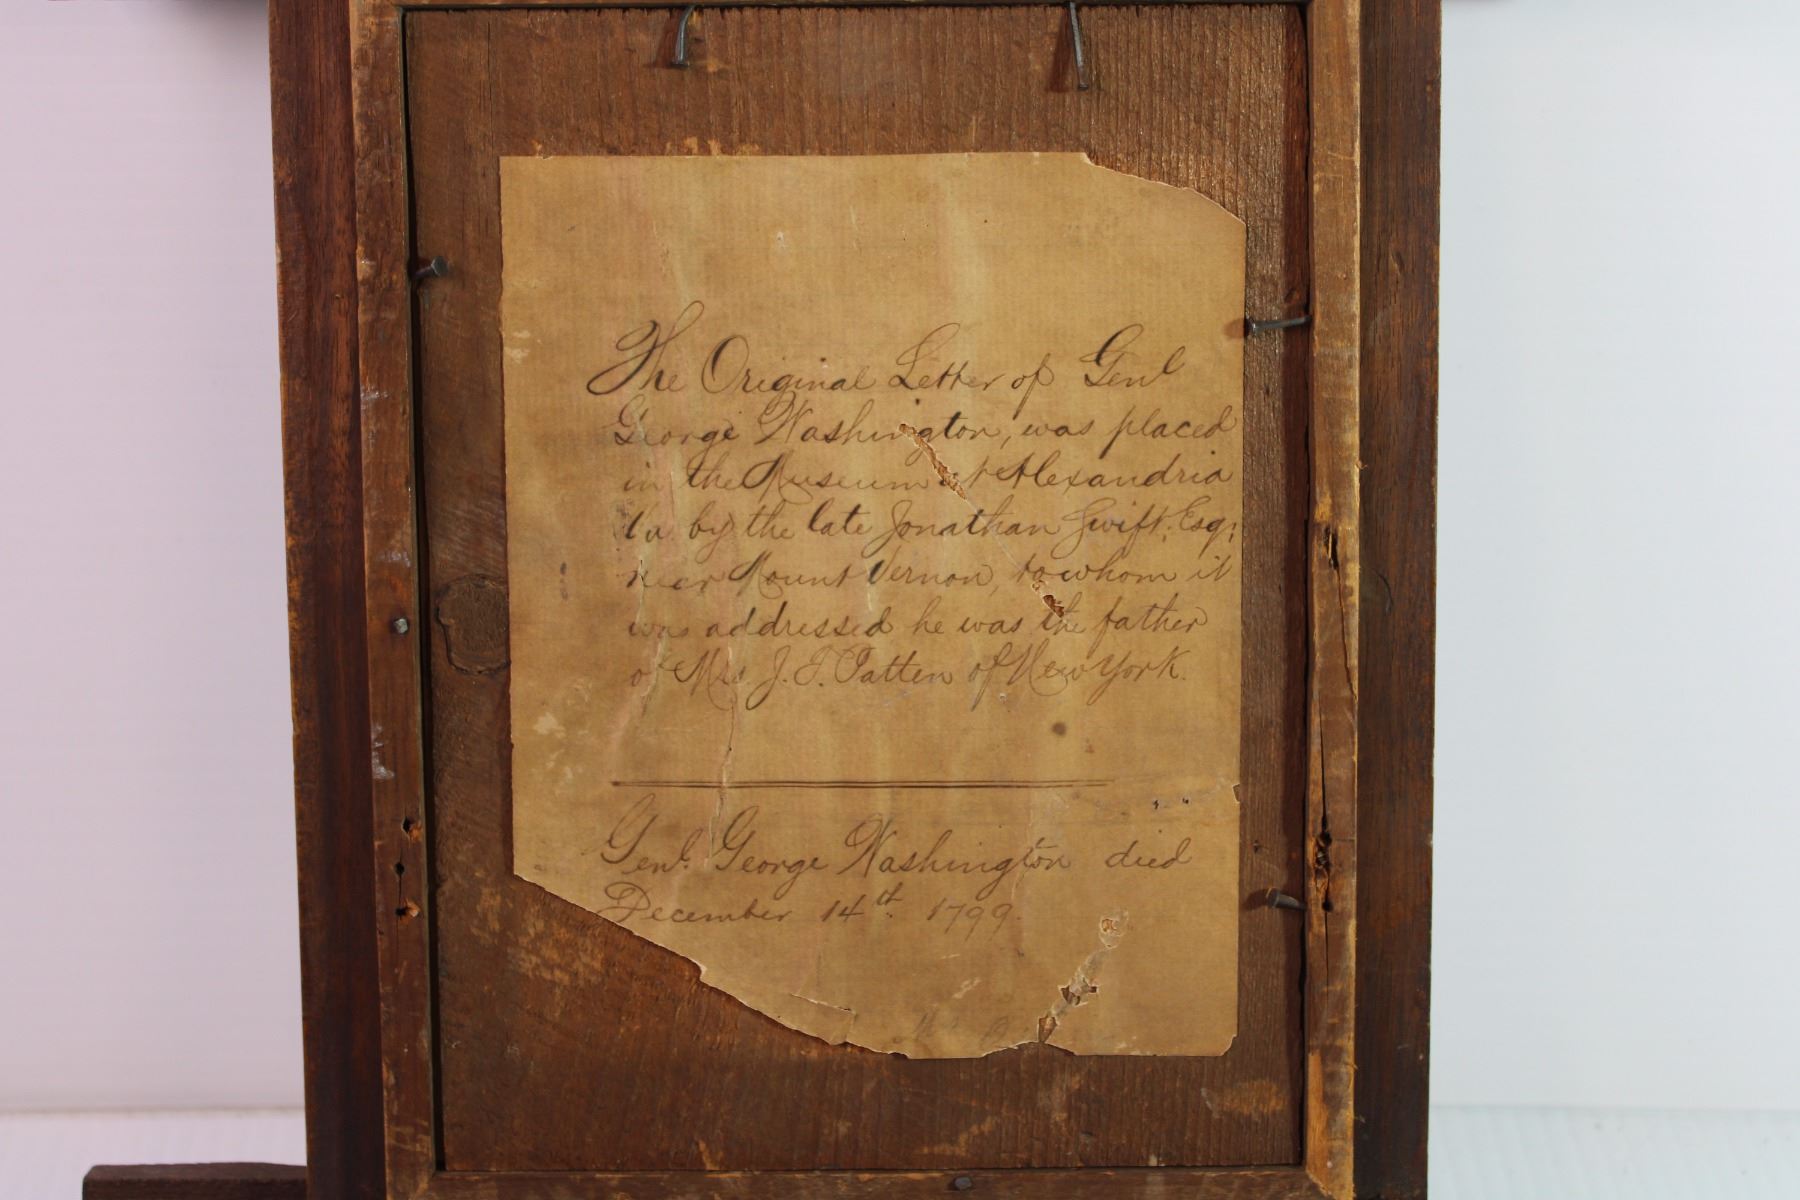 The Original Letter of Genl
George Washington, was placed
in the Museum at Alexandria
Va by the late Jonathan Swift. Esq:
near Mount Vernon, to whom it
was addressed he was the father
of Mrs J. T. Patten of New York.
Genl. George Washington died
December 14th. 1799.